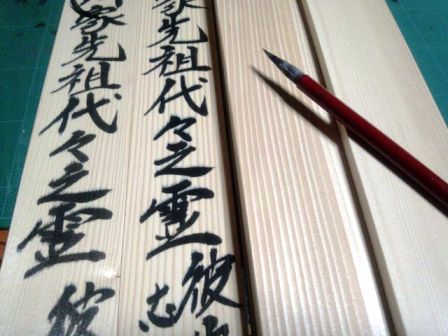 家先祖代々之霊
彼
志
家先祖代々之霊
彼